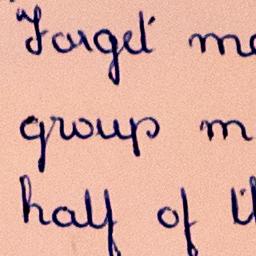 "Forget me
group m
half of th